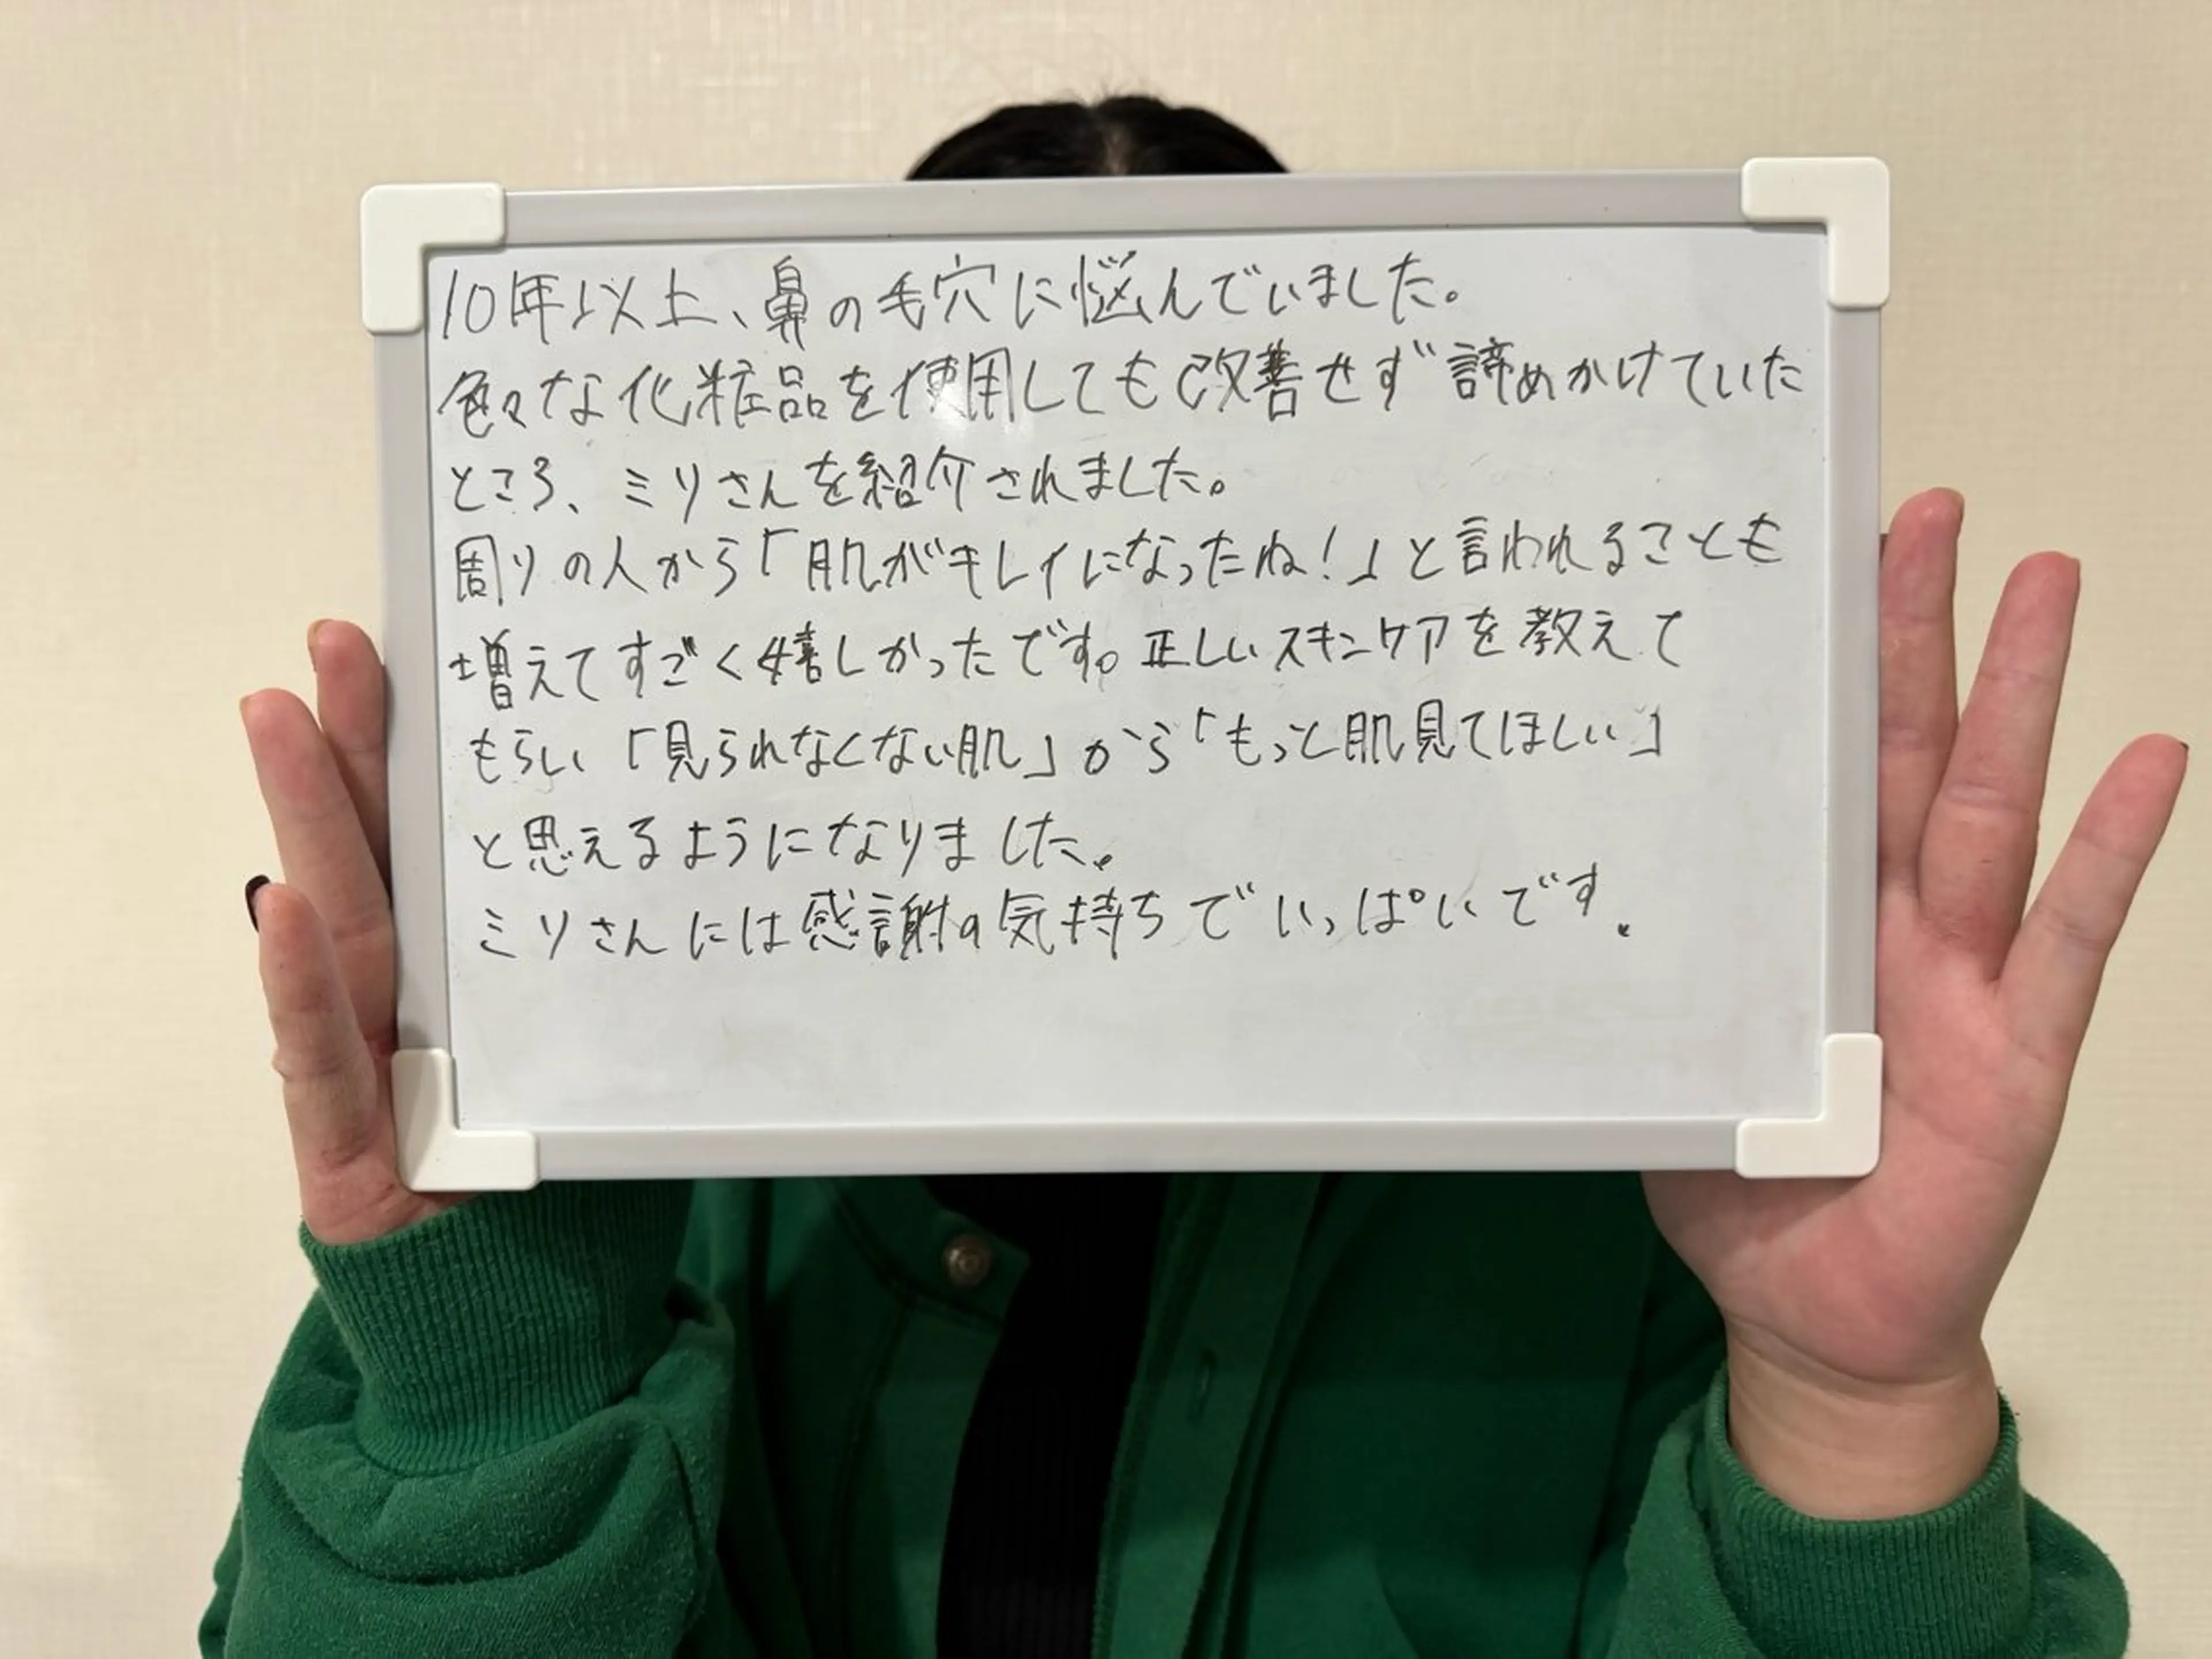 10年以上、鼻の毛穴に悩んでいました。
色々な化粧品を使用しても改善せず諦めかけていた
ところ、ミリさんを紹介されました。
周りの人から「肌がキレイになったね!」と言われることも
増えてすごく嬉しかったです。正しいスキンケアを教えて
もらい「見られなくない肌」から「もっと肌見てほしい」
と思えるようになりました。
ミリさんには感謝の気持ちでいっぱいです.